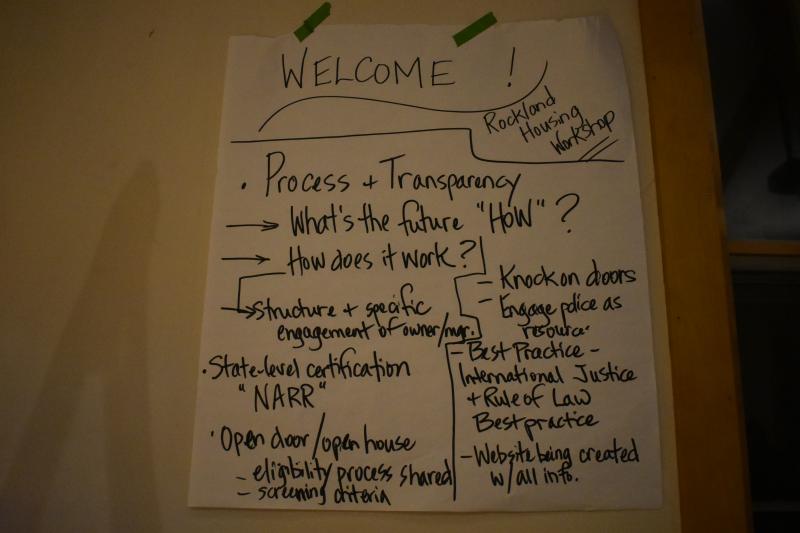 WELCOME !
Rockland
Housing
Workshop
• Process + Transparency
→ What's the future "HOW" ?
→ How does it work?
→ Structure + specific
engagement of owner/mgr.
• State-level certification
"NARR"
• Open door/open house
- eligibility process shared
- screening criteria
- Knock on doors
- Engage police as
resource
- Best Practice -
International Justice
+ Rule of Law
Best practice
- Website being created
w/ all info.